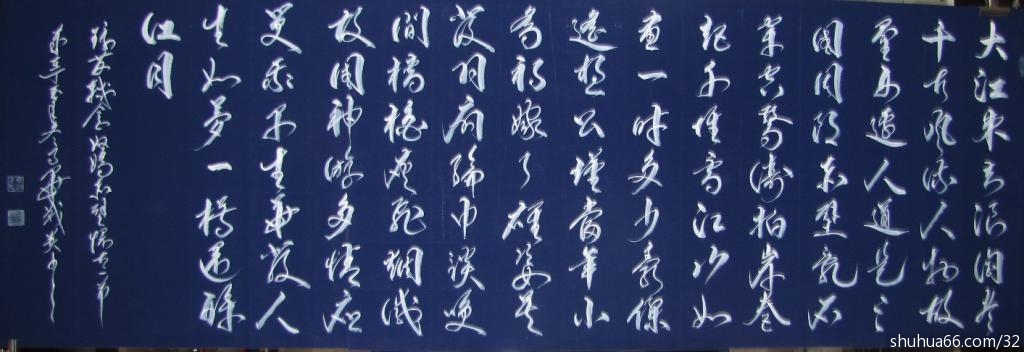 大江東去浪淘盡
千古風流人物故
壘西邊人道是三
國周郎赤壁亂石
穿空驚濤拍岸卷
起千堆雪江山如
畫一時多少豪傑
遙想公瑾當年小
喬初嫁了雄姿英
發羽扇綸巾談笑
間檣櫓灰飛煙滅
故國神游多情應
笑我早生華髮人
生如夢一樽還酹
江月
shuhua66.com/32